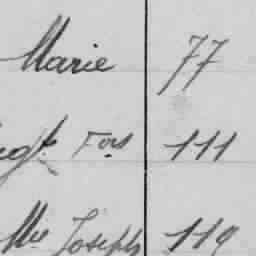 Marie 77
Fois 111
Mie Joseph 119